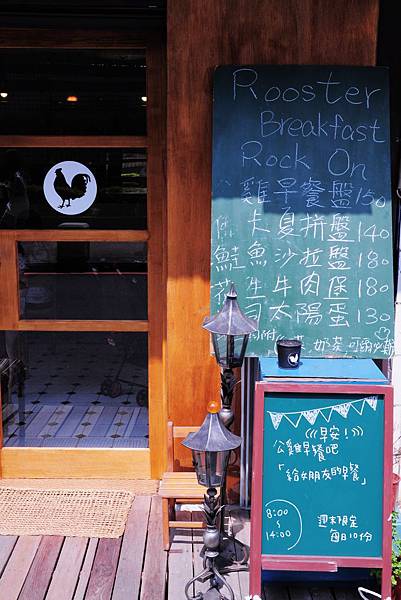 Rooster
Breakfast
Rock On
雞早餐盤150
夏拼盤140
鮭魚沙拉盤180
生牛肉堡180
太陽蛋130
早安!
公雞早餐吧
「給女朋友的早餐」
8:00
~
14:00
週末限定
每日10份